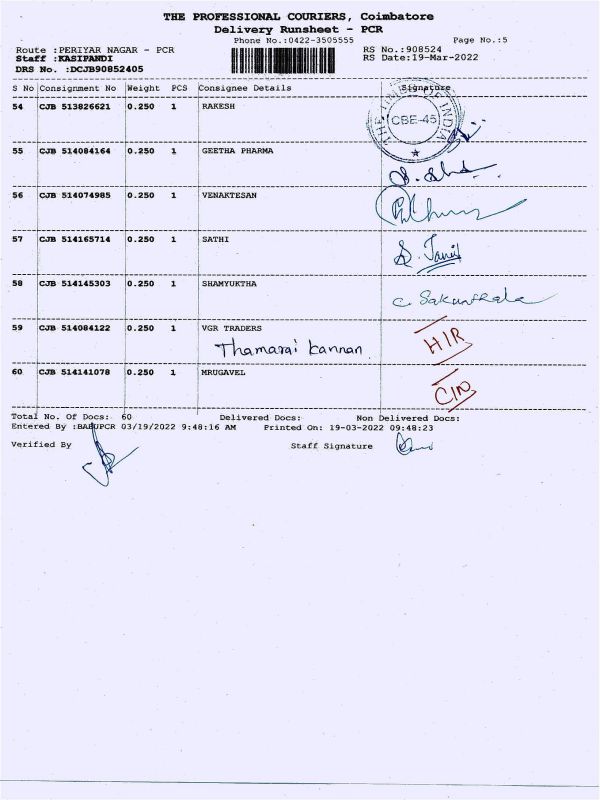 THE PROFESSIONAL COURIERS, Coimbatore
Delivery Runsheet - PCR
Phone No.:0422-3505555 Page No.:5
Route :PERIYAR NAGAR - PCR RS No.:908524
Staff :KASIPANDI RS Date:19-Mar-2022
DRS No. :DCJB90852405
S No Consignment No Weight PCS Consignee Details Signature
54 CJB 513826621 0.250 1 RAKESH
THE TIMES OF INDIA
CBE-45
55 CJB 514084164 0.250 1 GEETHA PHARMA
56 CJB 514074985 0.250 1 VENAKTESAN
57 CJB 514165714 0.250 1 SATHI
58 CJB 514145303 0.250 1 SHAMYUKTHA
59 CJB 514084122 0.250 1 VGR TRADERS
Thamarai kannan
60 CJB 514141078 0.250 1 MRUGAVEL
Total No. Of Docs: 60 Delivered Docs: Non Delivered Docs:
Entered By :BABUPCR 03/19/2022 9:48:16 AM Printed On: 19-03-2022 09:48:23
Verified By Staff Signature